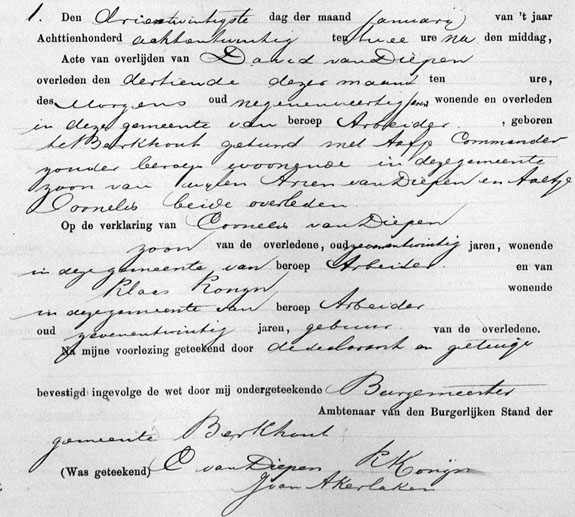 1. Den drieentwintigste dag der maand january van 't jaar
Achttienhonderd achtentwintig ten twee ure na den middag,
Acte van overlijden van David van Diepen
overleden den dertiende dezer maand ten ure,
des Morgens oud negenenveertig jaar wonende en overleden
in deze gemeente van beroep Arbeider , geboren
te Berkhout gehuwd met Aafje Commander
zonder beroep woonende in deze gemeente
zoon van wijlen Arien van Diepen en Aaltje
Cornelis beide overleden
Op de verklaring van Cornelis van Diepen
zoon van de overledene, oud zevenentwintig jaren, wonende
in deze gemeente van beroep Arbeider. en van
Klaas Konijn wonende
in deze gemeente van beroep Arbeider
oud zevenentwintig jaren, gebuur van de overledene.
Na mijne voorlezing geteekend door de declarant en getuige
bevestigd ingevolge de wet door mij ondergeteekende Burgemeester
Ambtenaar van den Burgerlijken Stand der
gemeente Berkhout
(Was geteekend) C van Diepen K Konijn
J van Akerlaken